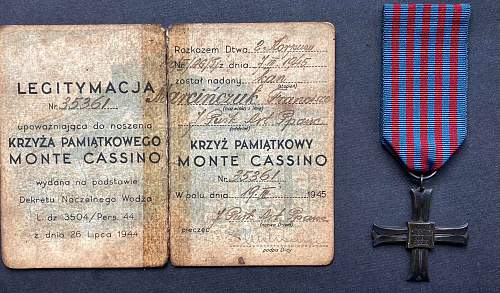 LEGITYMACJA
Nr. 35361
upoważniająca do noszenia
KRZYŻA PAMIĄTKOWEGO
MONTE CASSINO
wydana na podstawie
Dekretu Naczelnego Wodza
L. dz 3504/Pers. 44
z dnia 26 Lipca 1944
Rozkazem Dtwa 2 Korpusu
z dnia 7 III 1945
został nadany kan
(stopień)
Marcińczuk
(nazwisko i imię)
7 Płk. Art. Ppanc
(oddział)
KRZYŻ PAMIĄTKOWY
MONTE CASSINO
Nr. 35361
W polu dnia 19 III 1945
7 Płk. Art. Ppanc
pieczęć
podpis D-cy